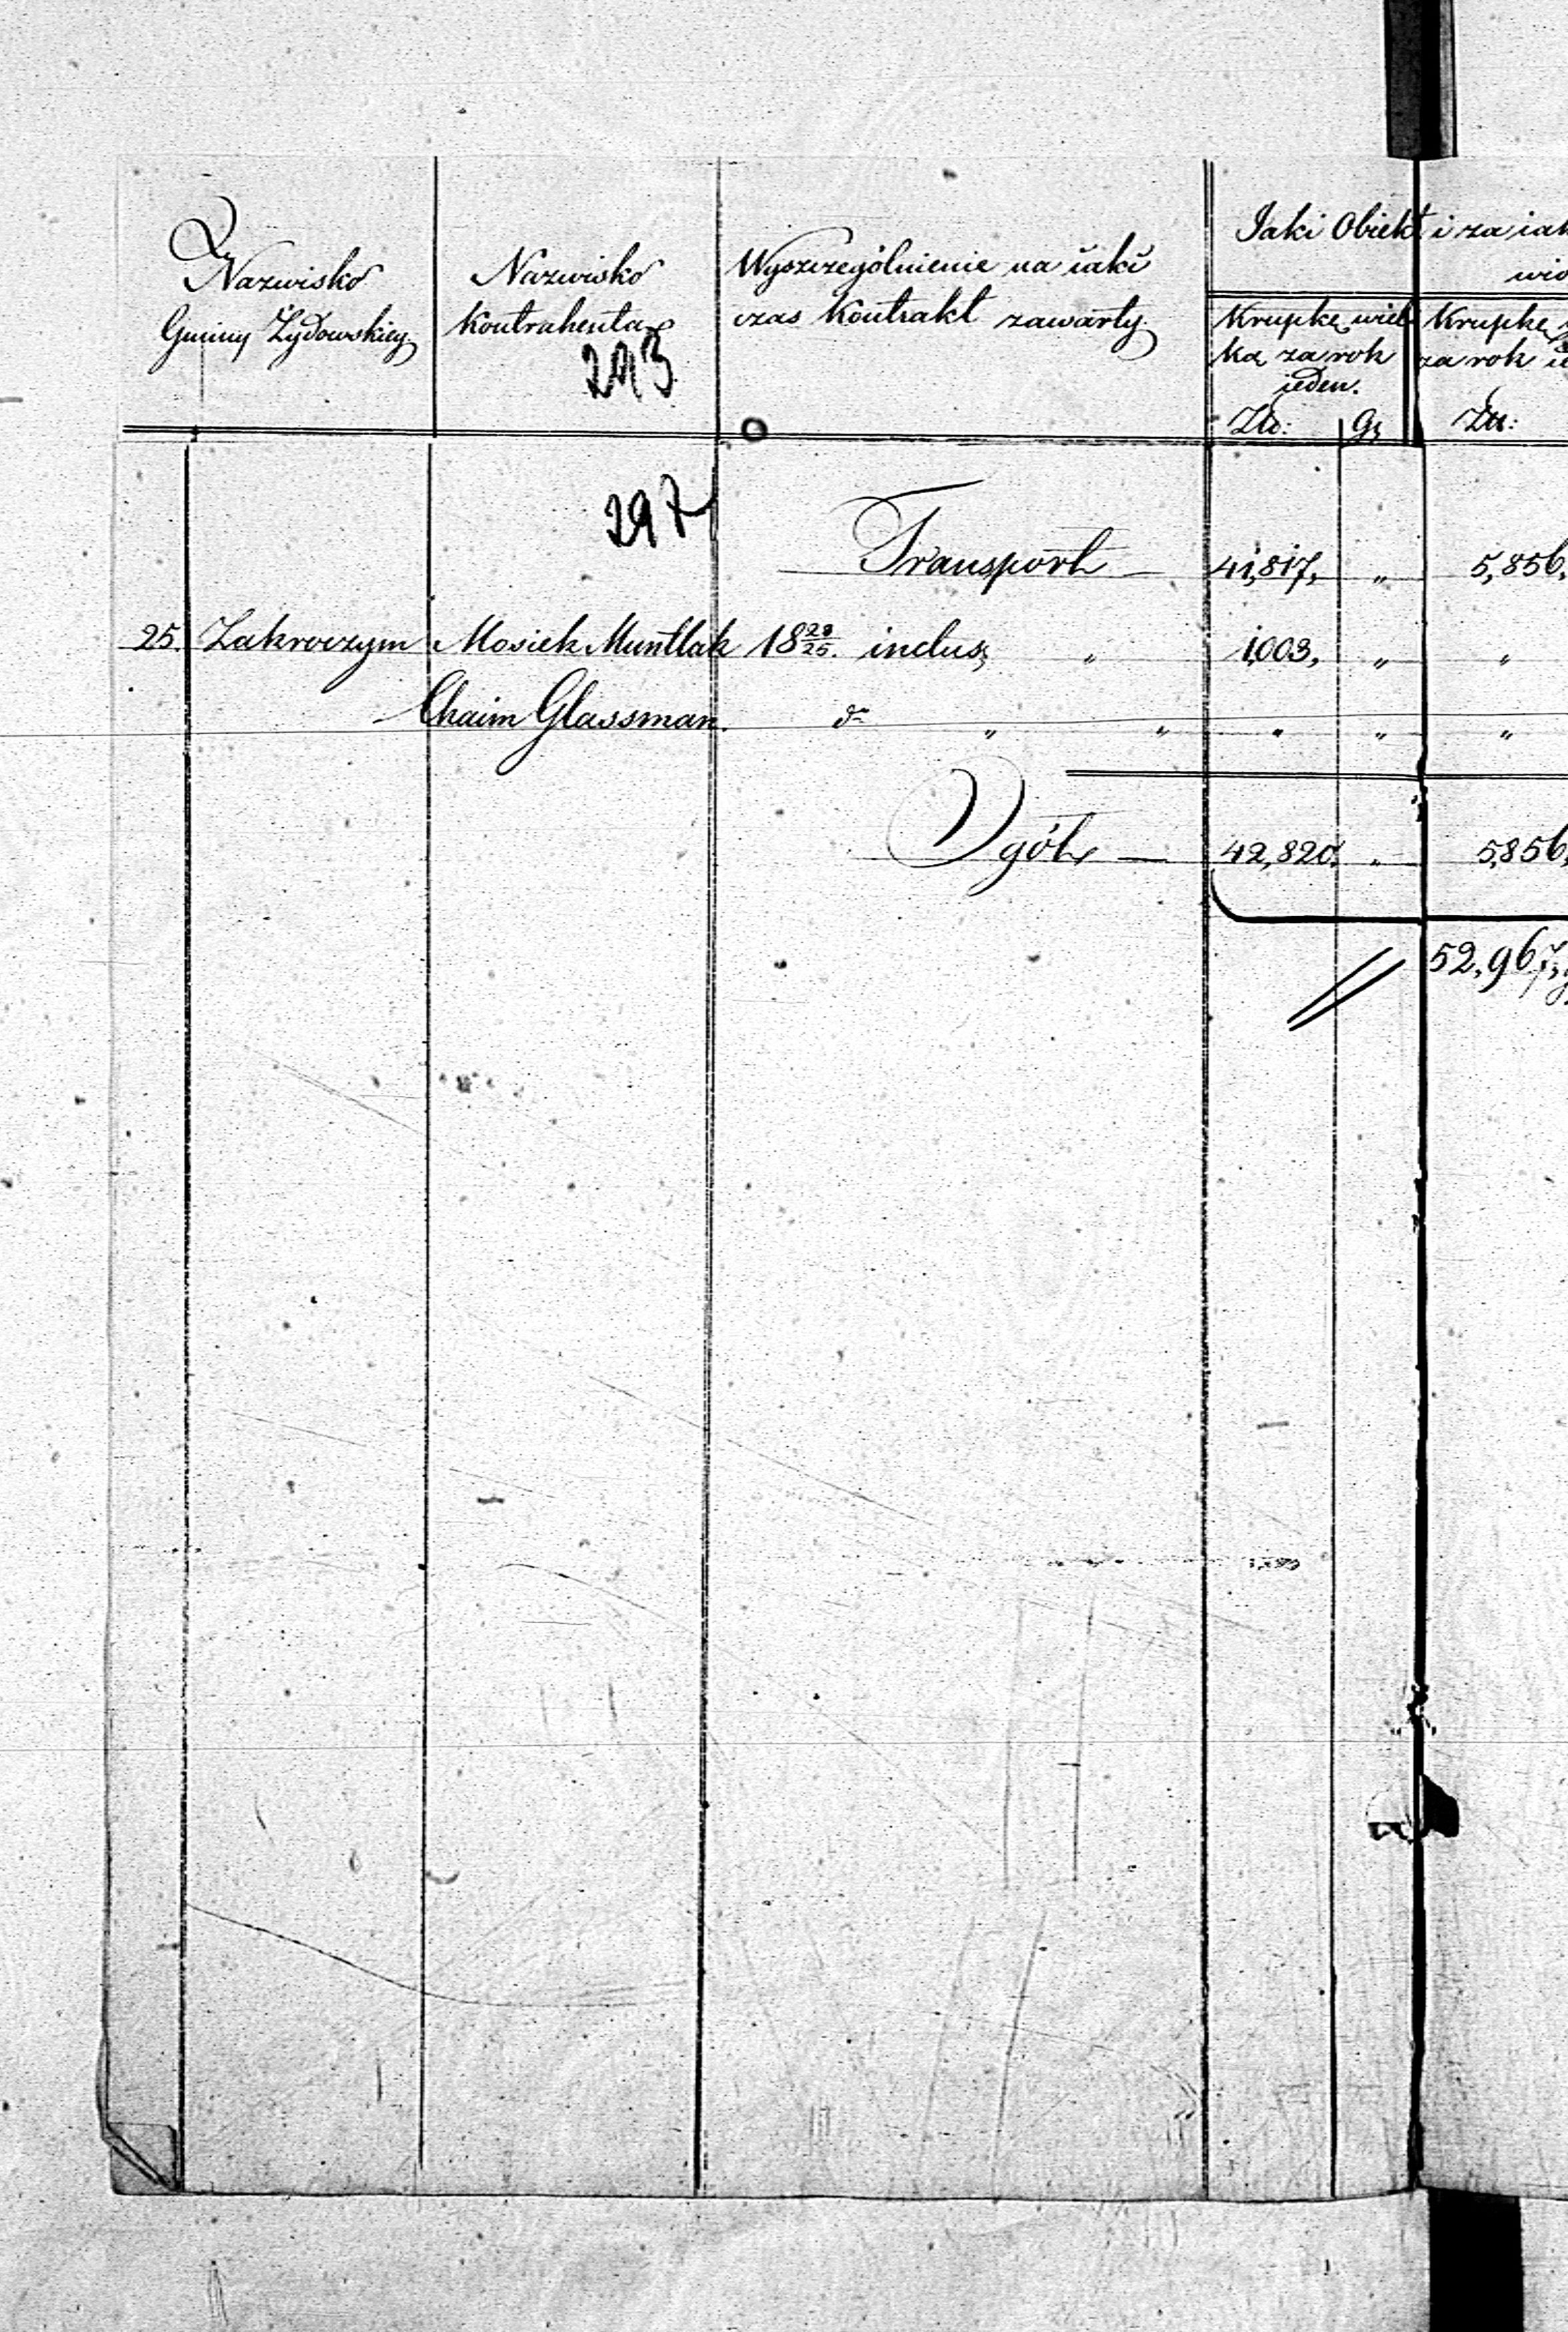 Nazwisko
Gminy Żydowskiey
Nazwisko
Kontrahenta
293
Wyszczególnienie na iaki
czas Kontrakt zawarty
Iaki Obiekt i za iak
wio
Krupkę wiel
ką za rok
ieden.
Złt: Gr
Krupkę
za rok ie
Złt:
297
Transport — 41,817, „ 5,856,
25. Zakroczym Mosiek Muntlak 18 23/25. inclus „ 1,003, „ „
Chaim Glassman. do „ „ „ „ „
Ogół — 42,820. „ 5,856,
52,967,